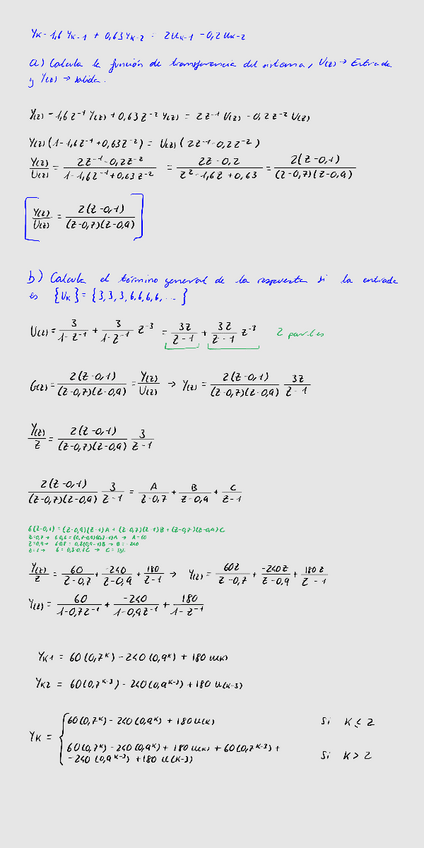 Yk - 1,6 Yk-1 + 0,63 Yk-2 = 2uk-1 - 0,2 uk-2
a) Calcula la función de transferencia del sistema, U(z) → Entrada
y Y(z) → salida.
Y(z) - 1,6 z^-1 Y(z) + 0,63 z^-2 Y(z) = 2z^-1 U(z) - 0,2z^-2 U(z)
Y(z) (1 - 1,6z^-1 + 0,63z^-2) = U(z) (2z^-1 - 0,2z^-2)
Y(z)/U(z) = (2z^-1 - 0,2z^-2)/(1 - 1,6z^-1 + 0,63z^-2) = (2z - 0,2)/(z^2 - 1,6z + 0,63) = 2(z - 0,1)/((z - 0,7)(z - 0,9))
[Y(z)/U(z) = 2(z - 0,1)/((z - 0,7)(z - 0,9))]
b) Calcula el término general de la respuesta si la entrada
es {Uk} = {3, 3, 3, 6, 6, 6, ... }
U(z) = 3/(1 - z^-1) + 3/(1 - z^-1) z^-3 = 3z/(z - 1) + 3z/(z - 1) z^-3 2 partes
G(z) = 2(z - 0,1)/((z - 0,7)(z - 0,9)) = Y(z)/U(z) → Y(z) = 2(z - 0,1)/((z - 0,7)(z - 0,9)) 3z/(z - 1)
Y(z)/z = 2(z - 0,1)/((z - 0,7)(z - 0,9)) 3/(z - 1)
2(z - 0,1)/((z - 0,7)(z - 0,9)) 3/(z - 1) = A/(z - 0,7) + B/(z - 0,9) + C/(z - 1)
6(z - 0,1) = (z - 0,9)(z - 1)A + (z - 0,7)(z - 1)B + (z - 0,7)(z - 0,9)C
Y(z)/z = 60/(z - 0,7) + -240/(z - 0,9) + 180/(z - 1) → Y(z) = 60z/(z - 0,7) + -240z/(z - 0,9) + 180z/(z - 1)
Y(z) = 60/(1 - 0,7z^-1) + -240/(1 - 0,9z^-1) + 180/(1 - z^-1)
Yk1 = 60(0,7^k) - 240(0,9^k) + 180 u(k)
Yk2 = 60(0,7^k-3) - 240(0,9^k-3) + 180 u(k-3)
Yk = { 60(0,7^k) - 240(0,9^k) + 180 u(k) Si k ≤ 2
60(0,7^k) - 240(0,9^k) + 180 u(k) + 60(0,7^k-3) +
- 240(0,9^k-3) + 180 u(k-3) Si k > 2